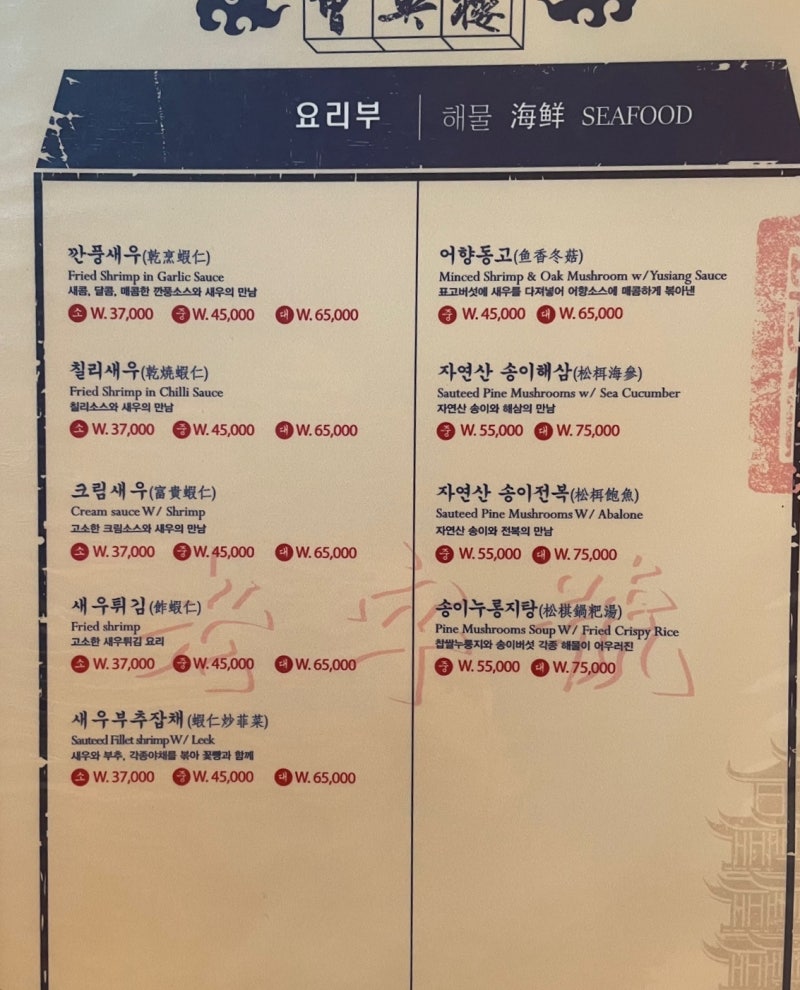 曾英樓
요리부 | 해물 海鮮 SEAFOOD
깐풍새우(乾烹蝦仁)
Fried Shrimp in Garlic Sauce
새콤, 달콤, 매콤한 깐풍소스와 새우의 만남
소 W. 37,000 중 W. 45,000 대 W. 65,000
칠리새우(乾燒蝦仁)
Fried Shrimp in Chilli Sauce
칠리소스와 새우의 만남
소 W. 37,000 중 W. 45,000 대 W. 65,000
크림새우(富貴蝦仁)
Cream sauce W/ Shrimp
고소한 크림소스와 새우의 만남
소 W. 37,000 중 W. 45,000 대 W. 65,000
새우튀김(鮓蝦仁)
Fried shrimp
고소한 새우튀김 요리
소 W. 37,000 중 W. 45,000 대 W. 65,000
새우부추잡채(蝦仁炒菲菜)
Sauteed Fillet shrimp W/ Leek
새우와 부추, 각종야채를 볶아 꽃빵과 함께
소 W. 37,000 중 W. 45,000 대 W. 65,000
어향동고(鱼香冬菇)
Minced Shrimp & Oak Mushroom w/ Yusiang Sauce
표고버섯에 새우를 다져넣어 어향소스에 매콤하게 볶아낸
중 W. 45,000 대 W. 65,000
자연산 송이해삼(松栮海參)
Sauteed Pine Mushrooms w/ Sea Cucumber
자연산 송이와 해삼의 만남
중 W. 55,000 대 W. 75,000
자연산 송이전복(松栮鮑魚)
Sauteed Pine Mushrooms W/ Abalone
자연산 송이와 전복의 만남
중 W. 55,000 대 W. 75,000
송이누룽지탕(松棋鍋粑湯)
Pine Mushrooms Soup W/ Fried Crispy Rice
찹쌀누룽지와 송이버섯 각종 해물이 어우러진
중 W. 55,000 대 W. 75,000